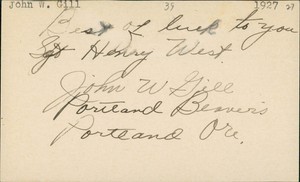 John W. Gill 39 1927 27
Best of luck to you
Sgt Henry West
John W Gill
Portland Beavers
Portland Ore.